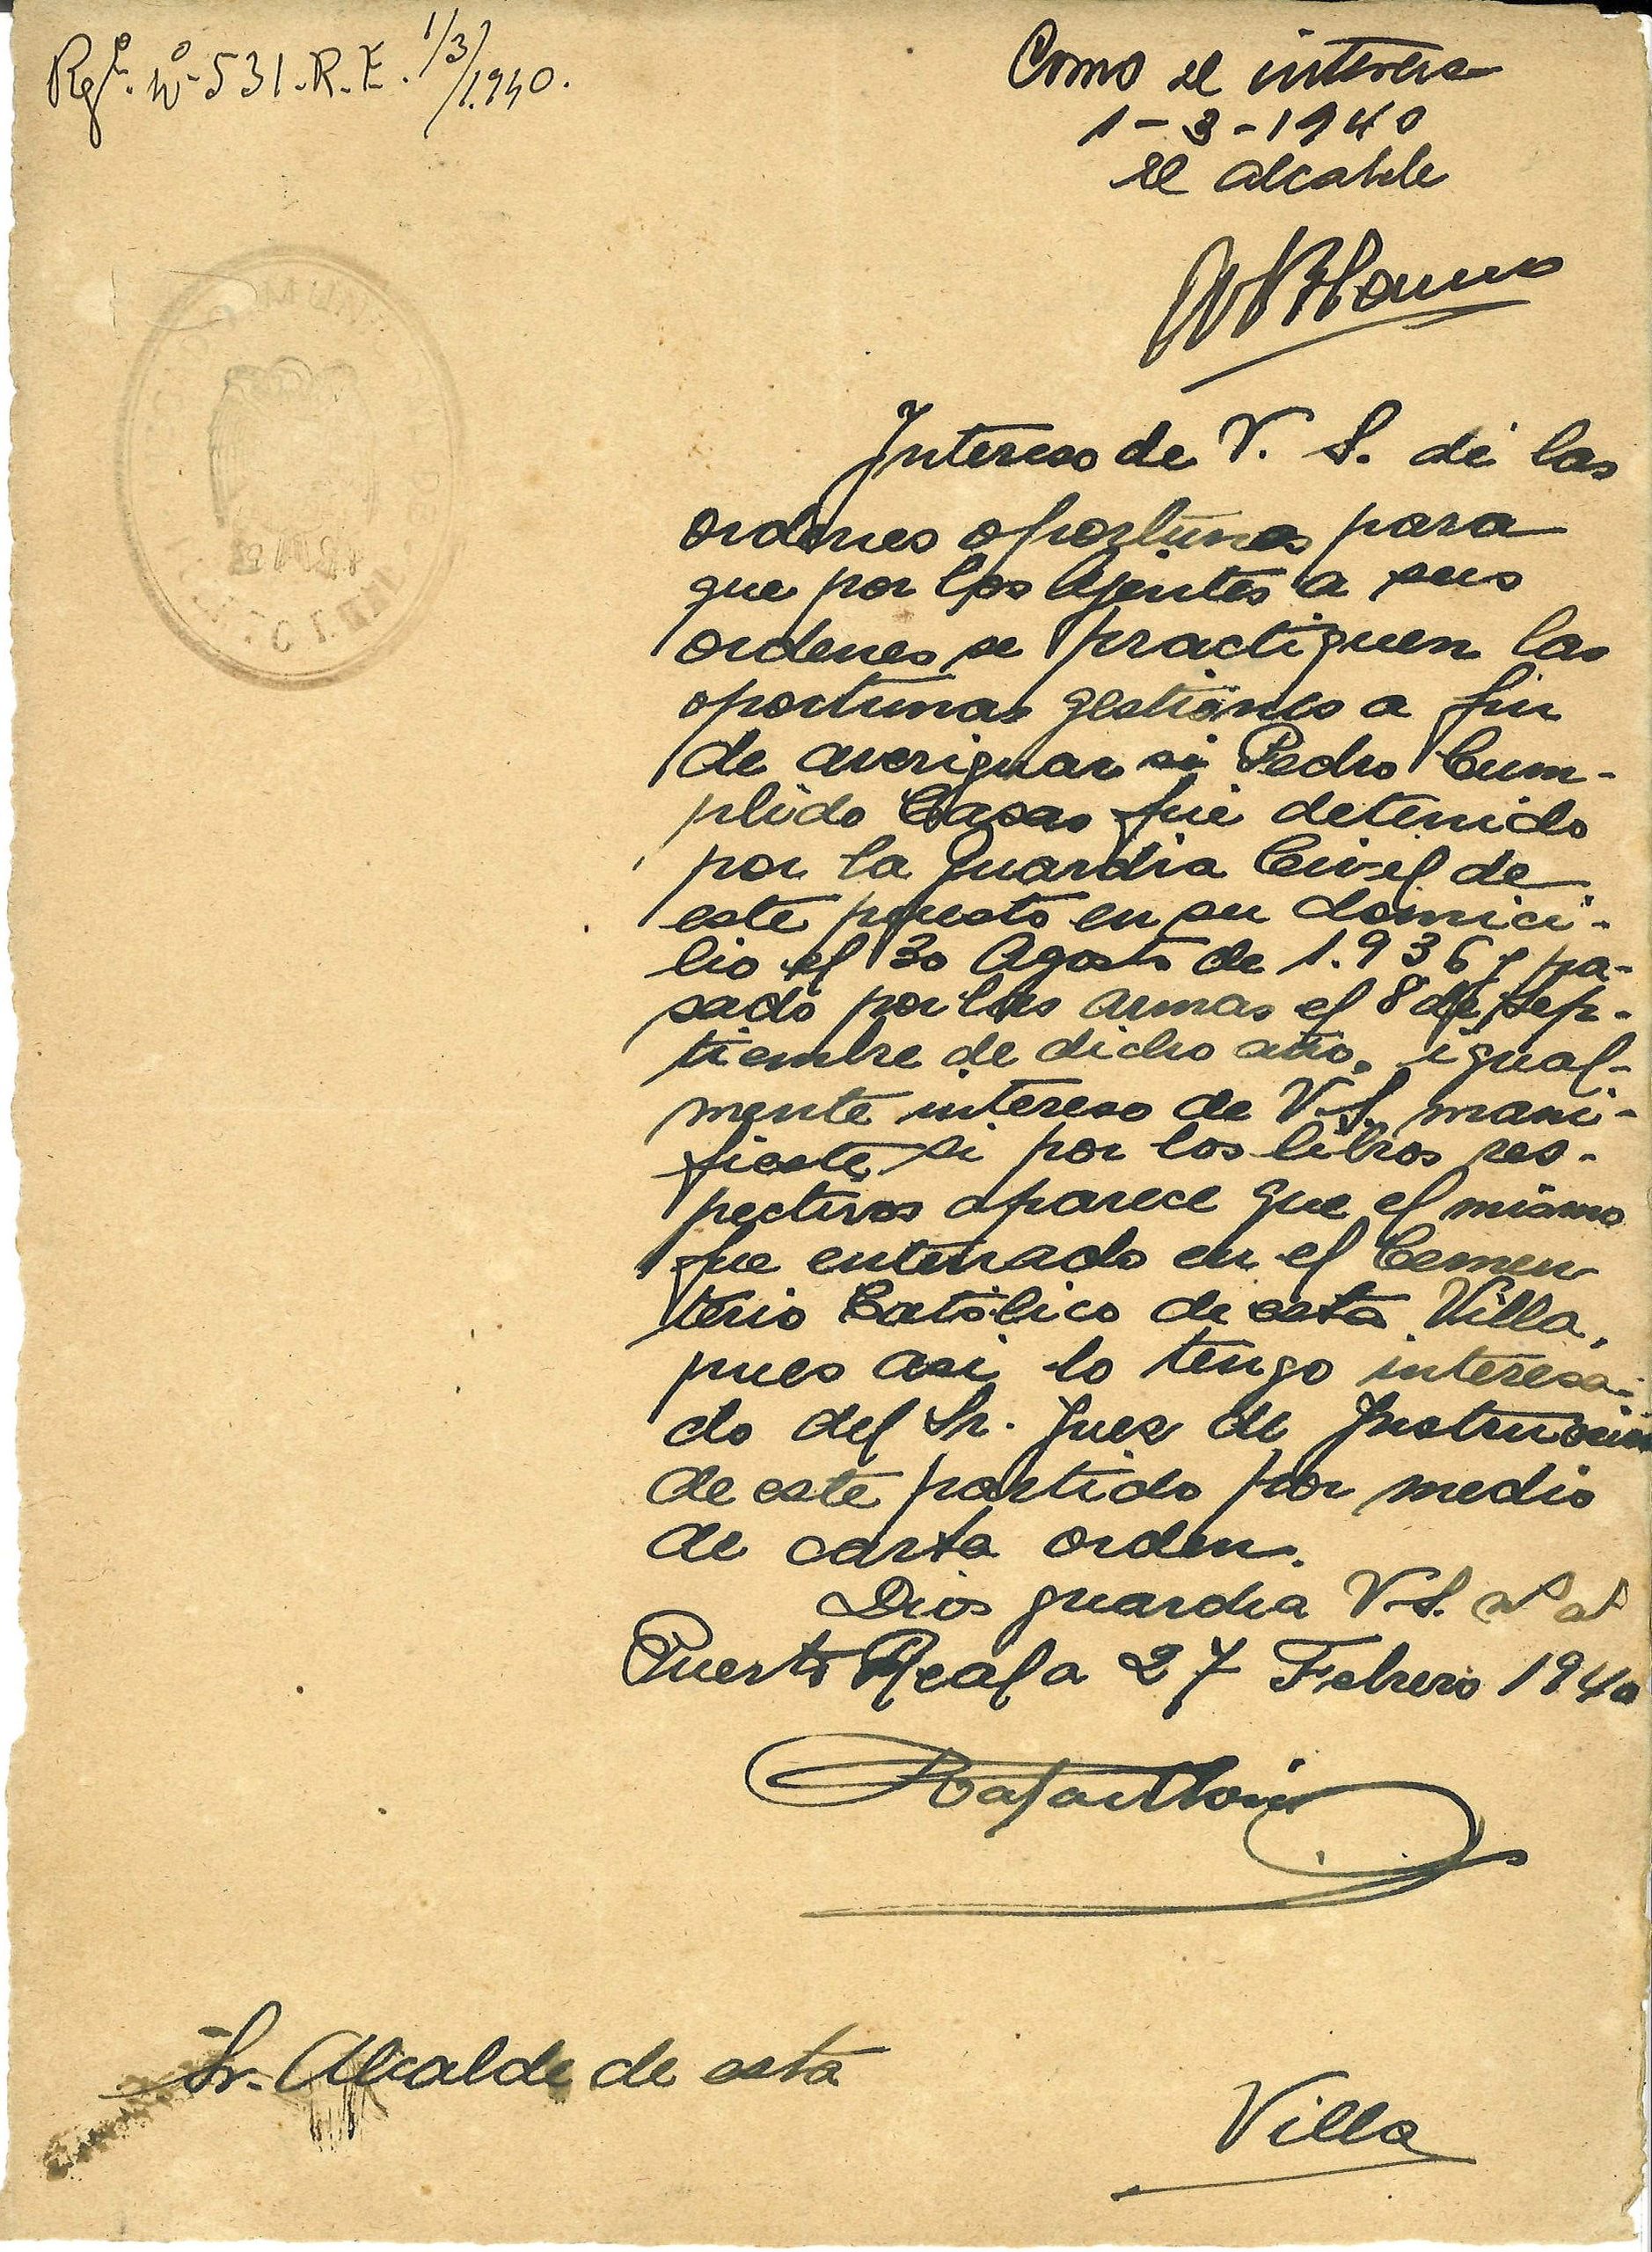 Rgº. Nº 531. R. E. 1/3/1.940.
Como se interesa
1-3-1940
El alcalde
Intereso de V. S. dé las
ordenes oportunas para
que por los Agentes a sus
ordenes se practiquen las
oportunas gestiones a fin
de averiguar si Pedro Cum-
plido Casas fué detenido
por la Guardia Civil de
este puesto en su domici-
lio el 30 Agosto de 1.936 y pa-
sado por las armas el 8 de Sep-
tiembre de dicho año. igual-
mente intereso de V.S. mani-
fieste si por los libros res-
pectivos aparece que el mismo
fue enterrado en el Cemen
terio Católico de esta Villa,
pues asi lo tengo interesa-
do del Sr. Juez de Instrucción
de este partido por medio
de carta orden.
Dios guardia V.S.
Puerto Real a 27 Febrero 1940
Sr. Alcalde de esta
Villa